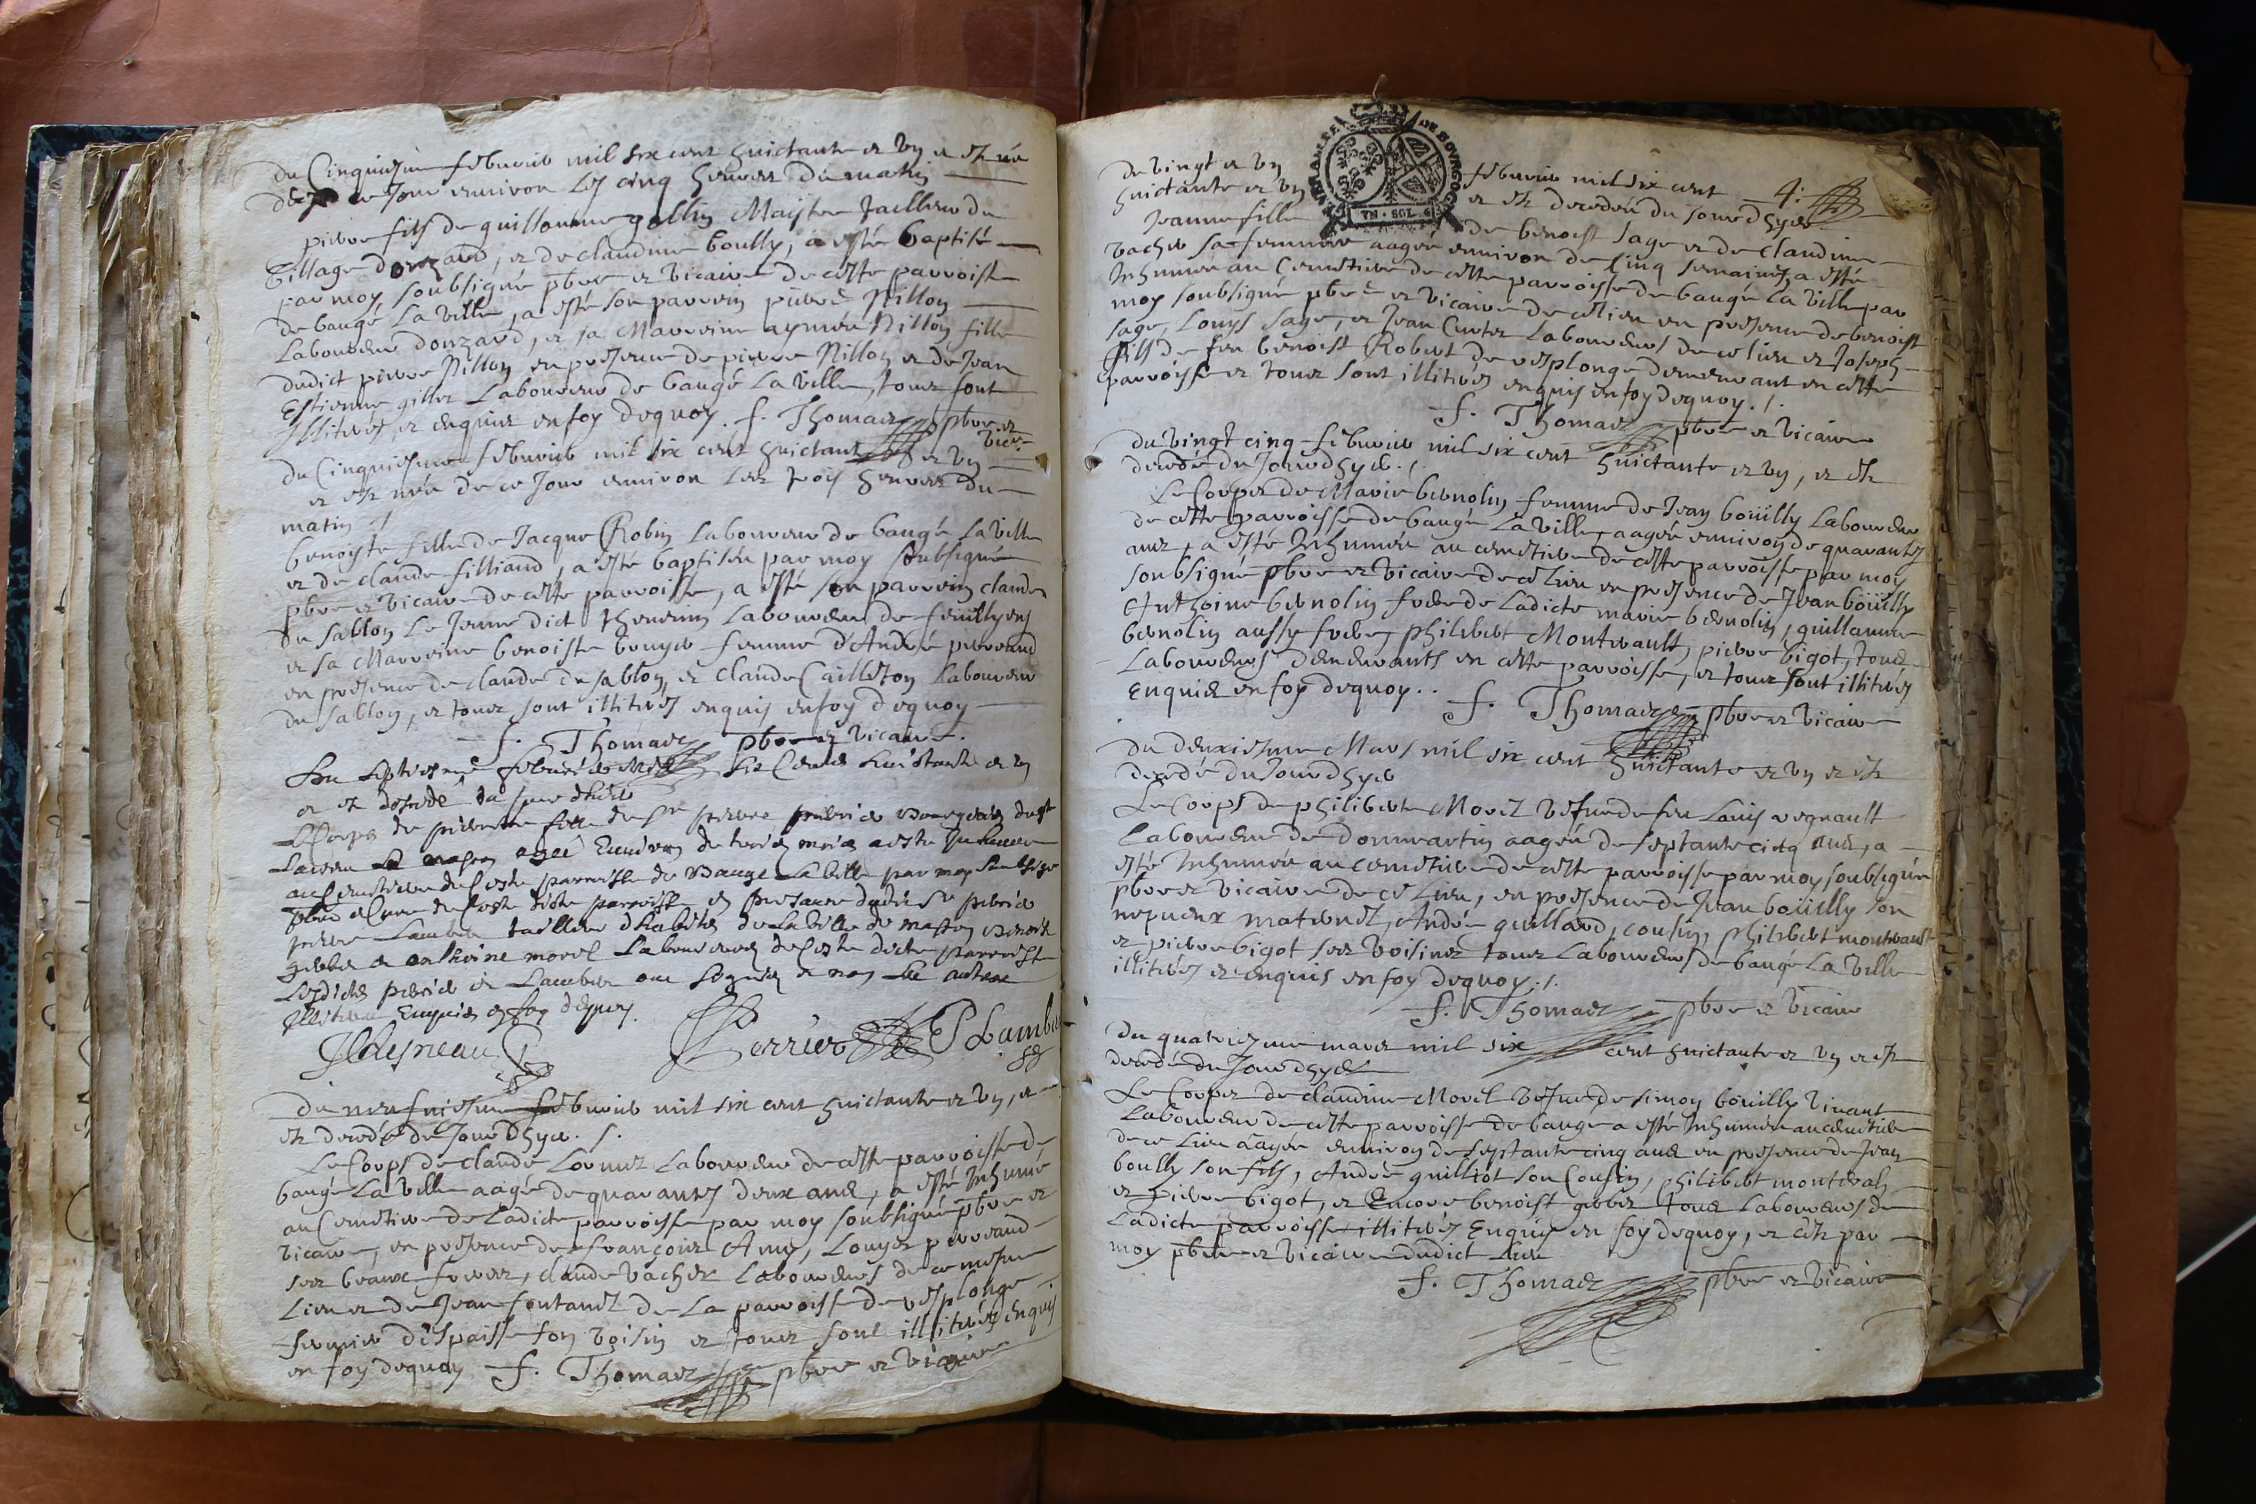 du Cinquiesme febvrier mil six cent huictante et un et est né
de ce Jour environ les cinq heures du matin
pierre fils de guillaume gollin Maistre Tailleur du
village donzard, et de claudine boully, a esté baptisé
par moy soubsigné pbre et vicaire de cette parroisse
de baugé La ville, a esté son parrein pierre Nillon
Laboureur donzard, et sa Marreine aymée Nillon fille
dudict pierre Nillon en presence de pierre Nillon et de Jean
Estienne gillet Laboureur de baugé La ville, tous sont
Illiterés, et enquis en foy dequoy. f. Thomas pbre et
vicre.
du Cinquiesme febvrier mil six cent huictante et un
et est née de ce Jour environ les trois heures du
matin
benoiste fille de Jacque Robin Laboureur de baugé La ville
et de claude filliaud, a esté baptisée par moy soubsigné
pbre et vicaire de cette parroisse, a esté son parrein claude
du sablon Le Jeune dict thevenin Laboureur de
et sa Marreine benoiste femme d'André perreaud
en presence de claude du sablon et claude Cailleton Laboureur
du sablon, et tous sont illiterés enquis en foy dequoy
f. Thomas pbre et vicaire.
Du septiesme febvrier mil six Cents huictante et un
et est decedé du jour dhier
Le Corps de pierrette fille de Sr pierre perrier Bourgeois
environ de trois mois a esté Inhumée
au Cemetiere de Ceste parroisse de Baugé La ville par moy soubsigné
pbre et Curé de Ceste dicte parroisse en presence dudict Sr perrier
pierre Lambert tailleur dhabits de La ville de Mascon benoist
gebes et anthoine morel Laboureurs de Ceste dicte parroisse
Lesdicts perrier et Lambert ont signés et non les autres
Illiterés Enquis en foy dequoy.
Chesneau Perrier P Lambert
du neufviesme febvrier mil six cent huictante et un, et
est decedé du Jour dhyer.
Le Corps de claude Lornet Laboureur de cette parroisse de
baugé La ville aagé de quarantes deux ans, a esté Inhumé
au Cemetiere de Ladicte parroisse par moy soubsigné pbre et
vicaire, en presence de françois Amy, Louys perreaud
ses beaux freres, claude vacher Laboureurs de ce mesme
Lieu et de Jean fontanel de La parroisse de vesplonge
fermier despaisse son voisin et tous sont illiterés enquis
en foy dequoy f. Thomas pbre et vicaire
du vingt et un febvrier mil six cent 4.
huictante et un et est decedée du Jour dhyer
Jeanne fille de benoist sage et de claudine
vacher sa femme aagée environ de cinq semaines, a esté
Inhumée au Cemetiere de cette parroisse de baugé La ville par
moy soubsigné pbre et vicaire de ce lieu en presence de benoist
sage, Louys sage, et Jean Curtet Laboureurs de ce lieu et Joseph
fils de feu benoist Robert de vesplonge demeurant en cette
parroisse et tous sont illiterés enquis en foy dequoy.
f. Thomas pbre et vicaire
du vingt cinq febvrier mil six cent huictante et un, et est
decedé du Jour dhyer.
Le Corps de Marie bernolin femme de Jean boüilly Laboureur
de cette parroisse de baugé La ville, aagée environ de quarantes
ans, a esté Inhumée au cemetiere de cette parroisse par moy
soubsigné pbre et vicaire de ce lieu en presence de Jean boüilly
Anthoine bernolin frere de Ladicte marie bernolin, guillaume
bernolin aussy frere, philibert Montrault, pierre bigot, tous
Laboureurs demeurants en cette parroisse, et tous sont illiterés
Enquis en foy dequoy..
f. Thomas pbre et vicaire
du deuxiesme Mars mil six cent huictante et un et est
decedé du Jour dhyer
Le Corps de philiberte Morel vefve de feu Louis regnault
Laboureur de dommartin aagée de septante cinq ans, a
esté Inhumée au cemetiere de cette parroisse par moy soubsigné
pbre et vicaire de ce Lieu, en presence de Jean boüilly son
nepveux maternel, André guillard, cousin, philibert montrault
et pierre bigot ses voisins tous Laboureurs de baugé La ville
illiterés et enquis en foy dequoy.
f. Thomas pbre et vicaire
du quatriezme mars mil six cent huictante et un et est
decedé du Jour dhyer
Le Corps de claudine Morel vefve de simon boüilly vivant
Laboureur de cette parroisse de baugé a esté Inhumée au cemetiere
de ce Lieu aagée environ de septante cinq ans en presence de Jean
boully son fils, André guilliot son Cousin, philibert montrah
et pierre bigot, et Encore benoist gebes tous Laboureurs de
Ladicte parroisse illiterés Enquis en foy dequoy, et est par
moy pbre et vicaire dudict Lieu
f. Thomas pbre et vicaire